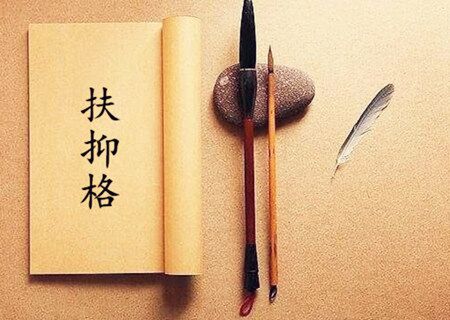 扶抑格